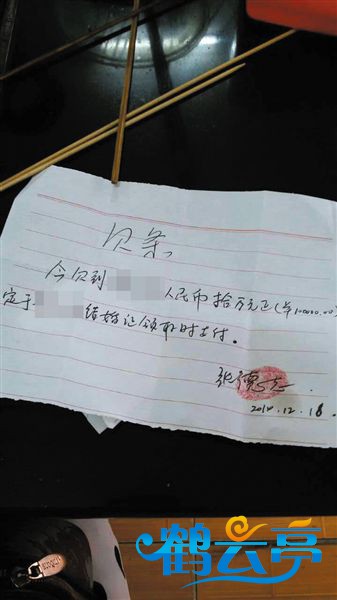 欠条
今欠到 人民币拾万元正(￥100000.00)
定于 结婚证领取时支付。
张德
2014.12.18.
鹤云亭